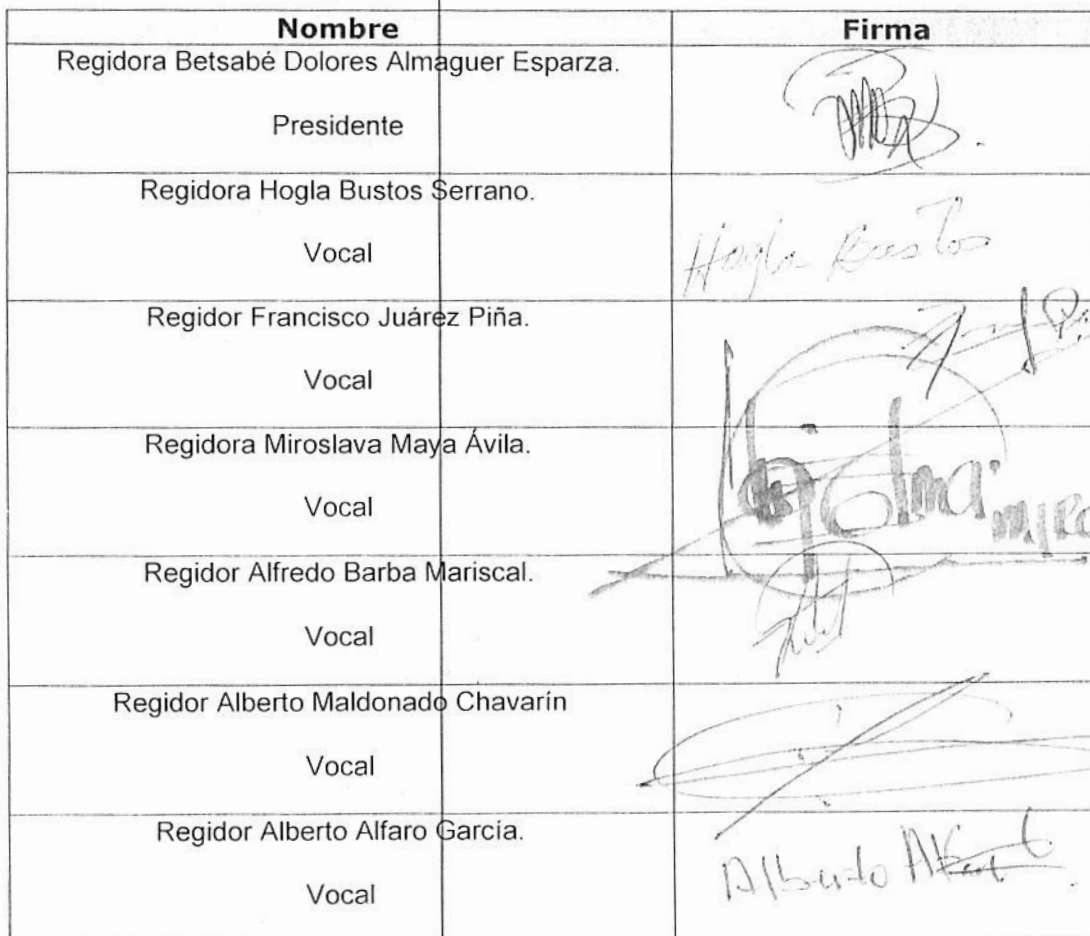 Nombre Firma
Regidora Betsabé Dolores Almaguer Esparza.
Presidente
Regidora Hogla Bustos Serrano.
Vocal
Hogla Bustos
Regidor Francisco Juárez Piña.
Vocal
Regidora Miroslava Maya Ávila.
Vocal
Regidor Alfredo Barba Mariscal.
Vocal
Regidor Alberto Maldonado Chavarín
Vocal
Regidor Alberto Alfaro García.
Vocal
Alberto